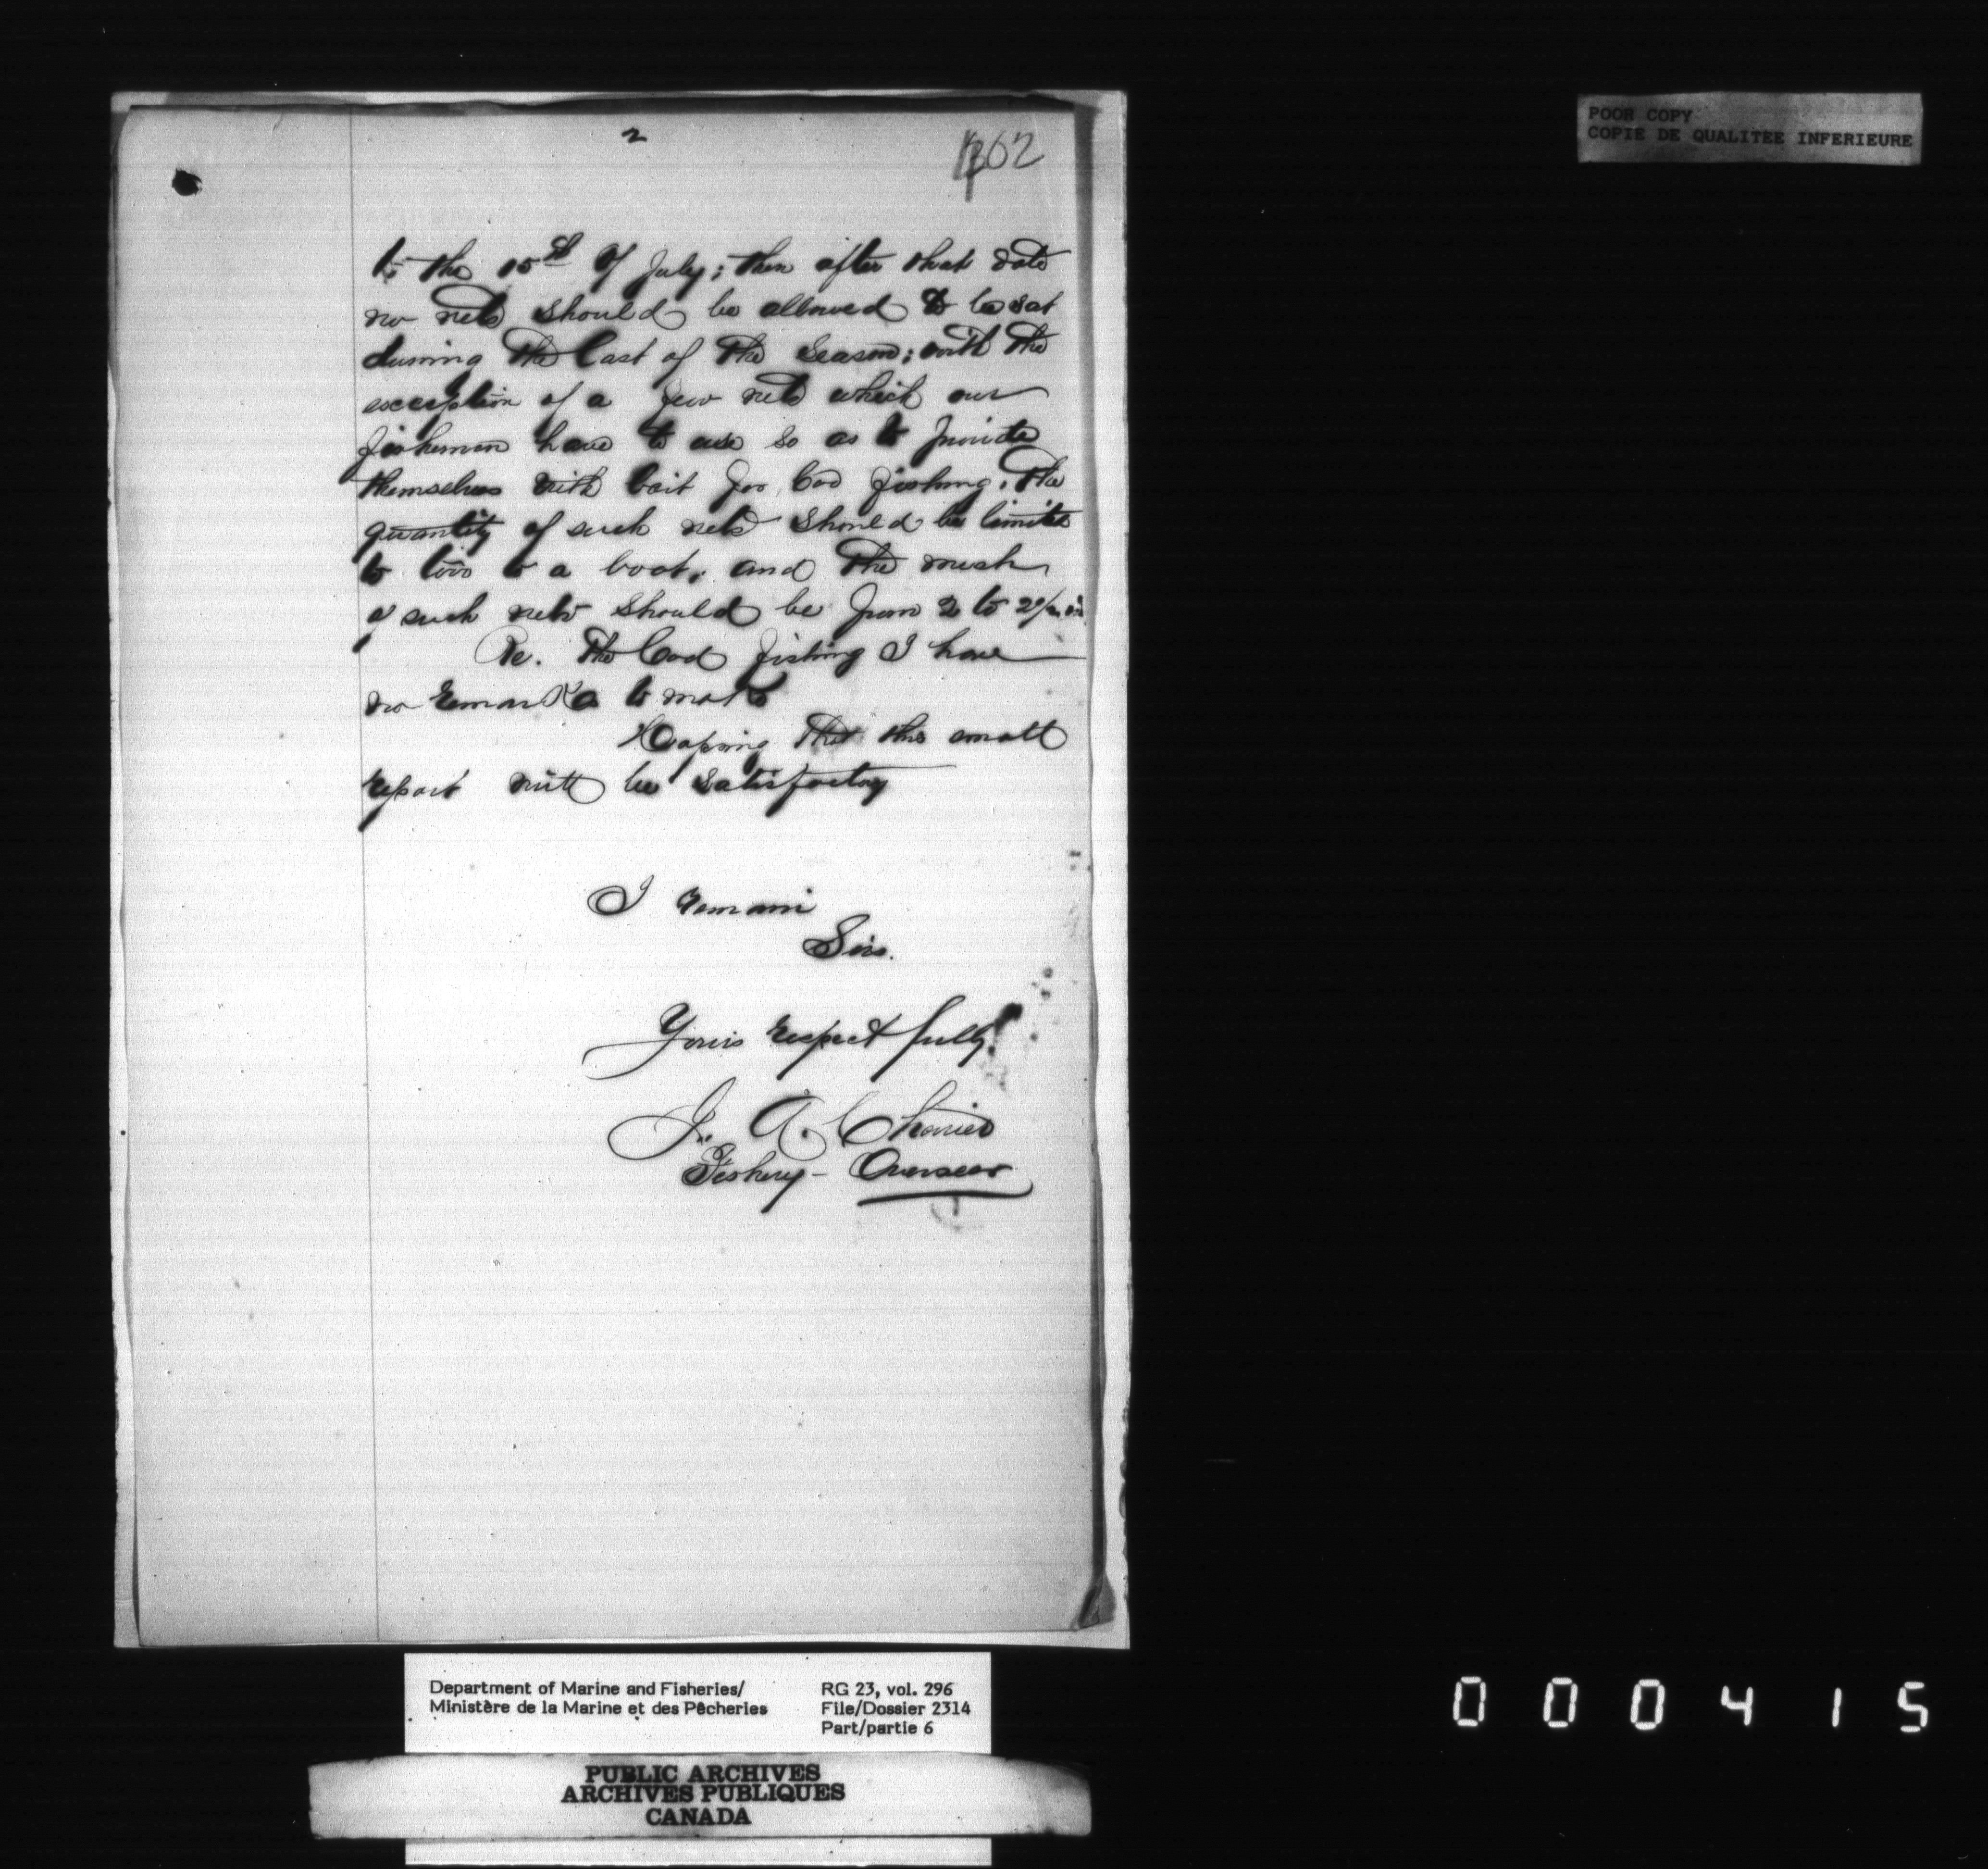 2
362
to the 15th of July; then after that date
no nets should be allowed to be set
during the last of the season; with the
exception of a few nets which our
fishermen have to use so as to provide
themselves with bait for Cod fishing. The
quantity of such nets should be limited
to two to a boat, and the mesh
of such nets should be from 2 to 2½ in
Re. The Cod fishing I have
no remarks to make
Hoping that this small
report will be satisfactory
I remain
Sir.
Yours respectfully
J. A. Chevrier
Fishery - Overseer
POOR COPY
COPIE DE QUALITEE INFERIEURE
Department of Marine and Fisheries/
Ministère de la Marine et des Pêcheries
RG 23, vol. 296
File/Dossier 2314
Part/partie 6
PUBLIC ARCHIVES
ARCHIVES PUBLIQUES
CANADA
000415